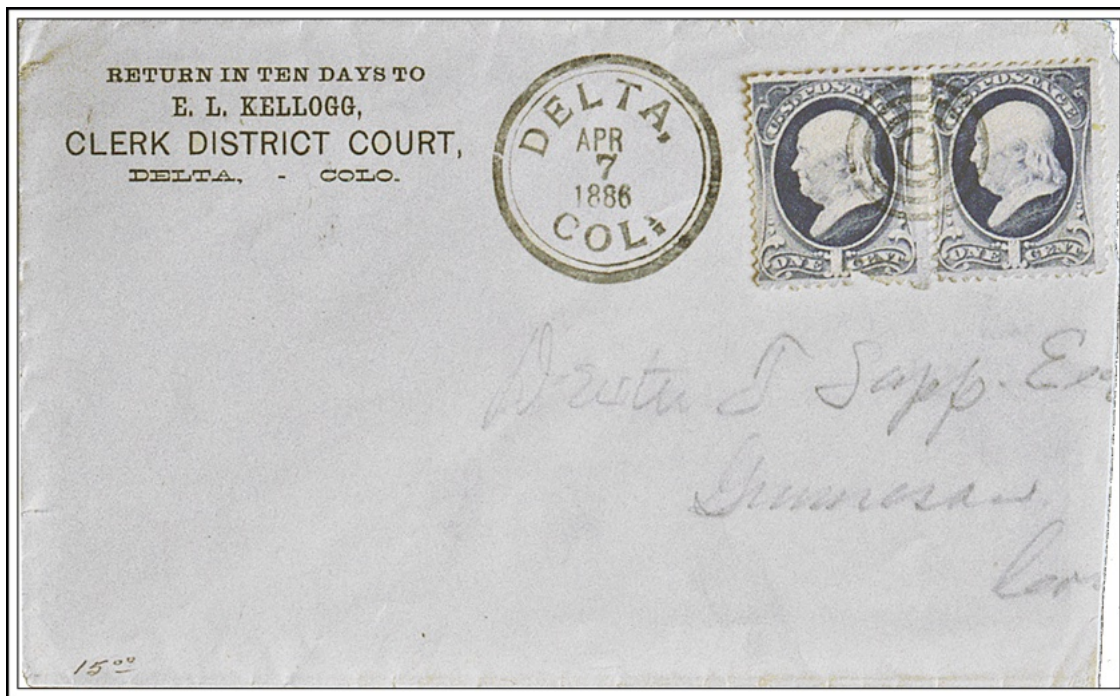 RETURN IN TEN DAYS TO
E. L. KELLOGG,
CLERK DISTRICT COURT,
DELTA, - COLO.
DELTA,
APR
7
1886
COL.
U.S. POSTAGE
ONE 1 CENT
U.S. POSTAGE
ONE 1 CENT
T Sapp. Esq
15 00